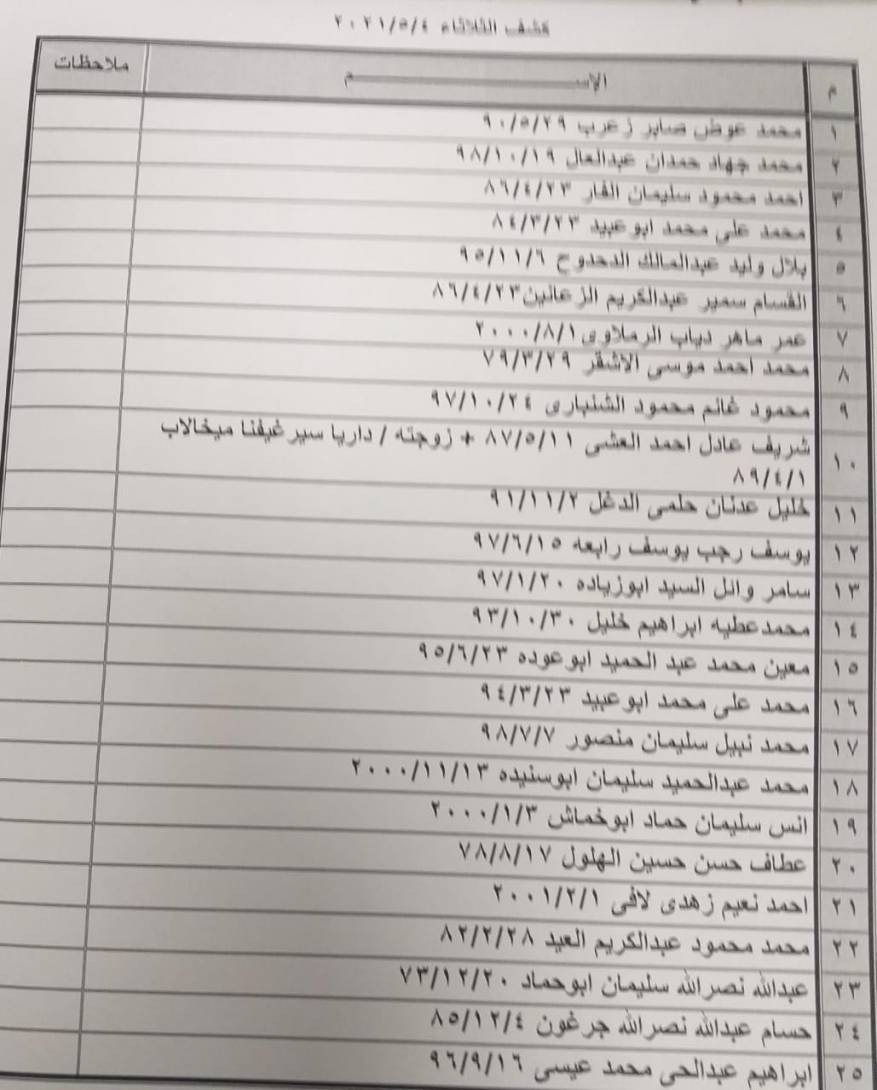 كشف الثلاثاء ٢٠٢١/٥/٤
م الاســـــم ملاحظات
١ محمد عوض صابر زعرب ٩٠/٥/٢٩
٢ محمد جهاد حمدان عبدالعال ٩٨/١٠/١٩
٣ احمد محمود سليمان الفار ٨٦/٤/٢٣
٤ محمد على محمد ابو عبيد ٨٤/٣/٢٣
٥ بلال وليد عبدالمالك الدحدوح ٩٥/١١/٦
٦ القسام سمير عبدالكريم الزعانين ٨٦/٤/٢٣
٧ عمر ماهر دياب الرملاوى ٢٠٠٠/٨/١
٨ محمد احمد موسى الاشقر ٧٩/٣/٢٩
٩ محمود غانم محمود الشنبارى ٩٧/١٠/٢٤
١٠ شريف عادل احمد العشى ٨٧/٥/١١ + زوجته / داريا سير غيفنا ميخالاب
٨٩/٤/١
١١ خليل عدنان حلمى الدغل ٩١/١١/٢
١٢ يوسف رجب يوسف رابعه ٩٧/٦/١٥
١٣ سامر وائل السيد ابوزياده ٩٧/١/٢٠
١٤ محمدعطيه ابراهيم خليل ٩٣/١٠/٣٠
١٥ معين محمد عبد الحميد ابو عوده ٩٥/٦/٢٣
١٦ محمد على محمد ابو عبيد ٩٤/٣/٢٣
١٧ محمد نبيل سليمان منصور ٩٨/٧/٧
١٨ محمد عبدالحميد سليمان ابوسنيده ٢٠٠٠/١١/١٣
١٩ انس سليمان حماد ابوخماش ٢٠٠٠/١/٣
٢٠ عطاف حسن حسين الهلول ٧٨/٨/١٧
٢١ احمد نعيم زهدى لافى ٢٠٠١/٢/١
٢٢ محمد محمود عبدالكريم العيد ٨٢/٢/٢٨
٢٣ عبدالله نصرالله سليمان ابوحماد ٧٣/١٢/٢٠
٢٤ حسام عبدالله نصرالله جرغون ٨٥/١٢/٤
٢٥ ابراهيم عبدالحى محمد عيسى ٩٦/٩/١٦